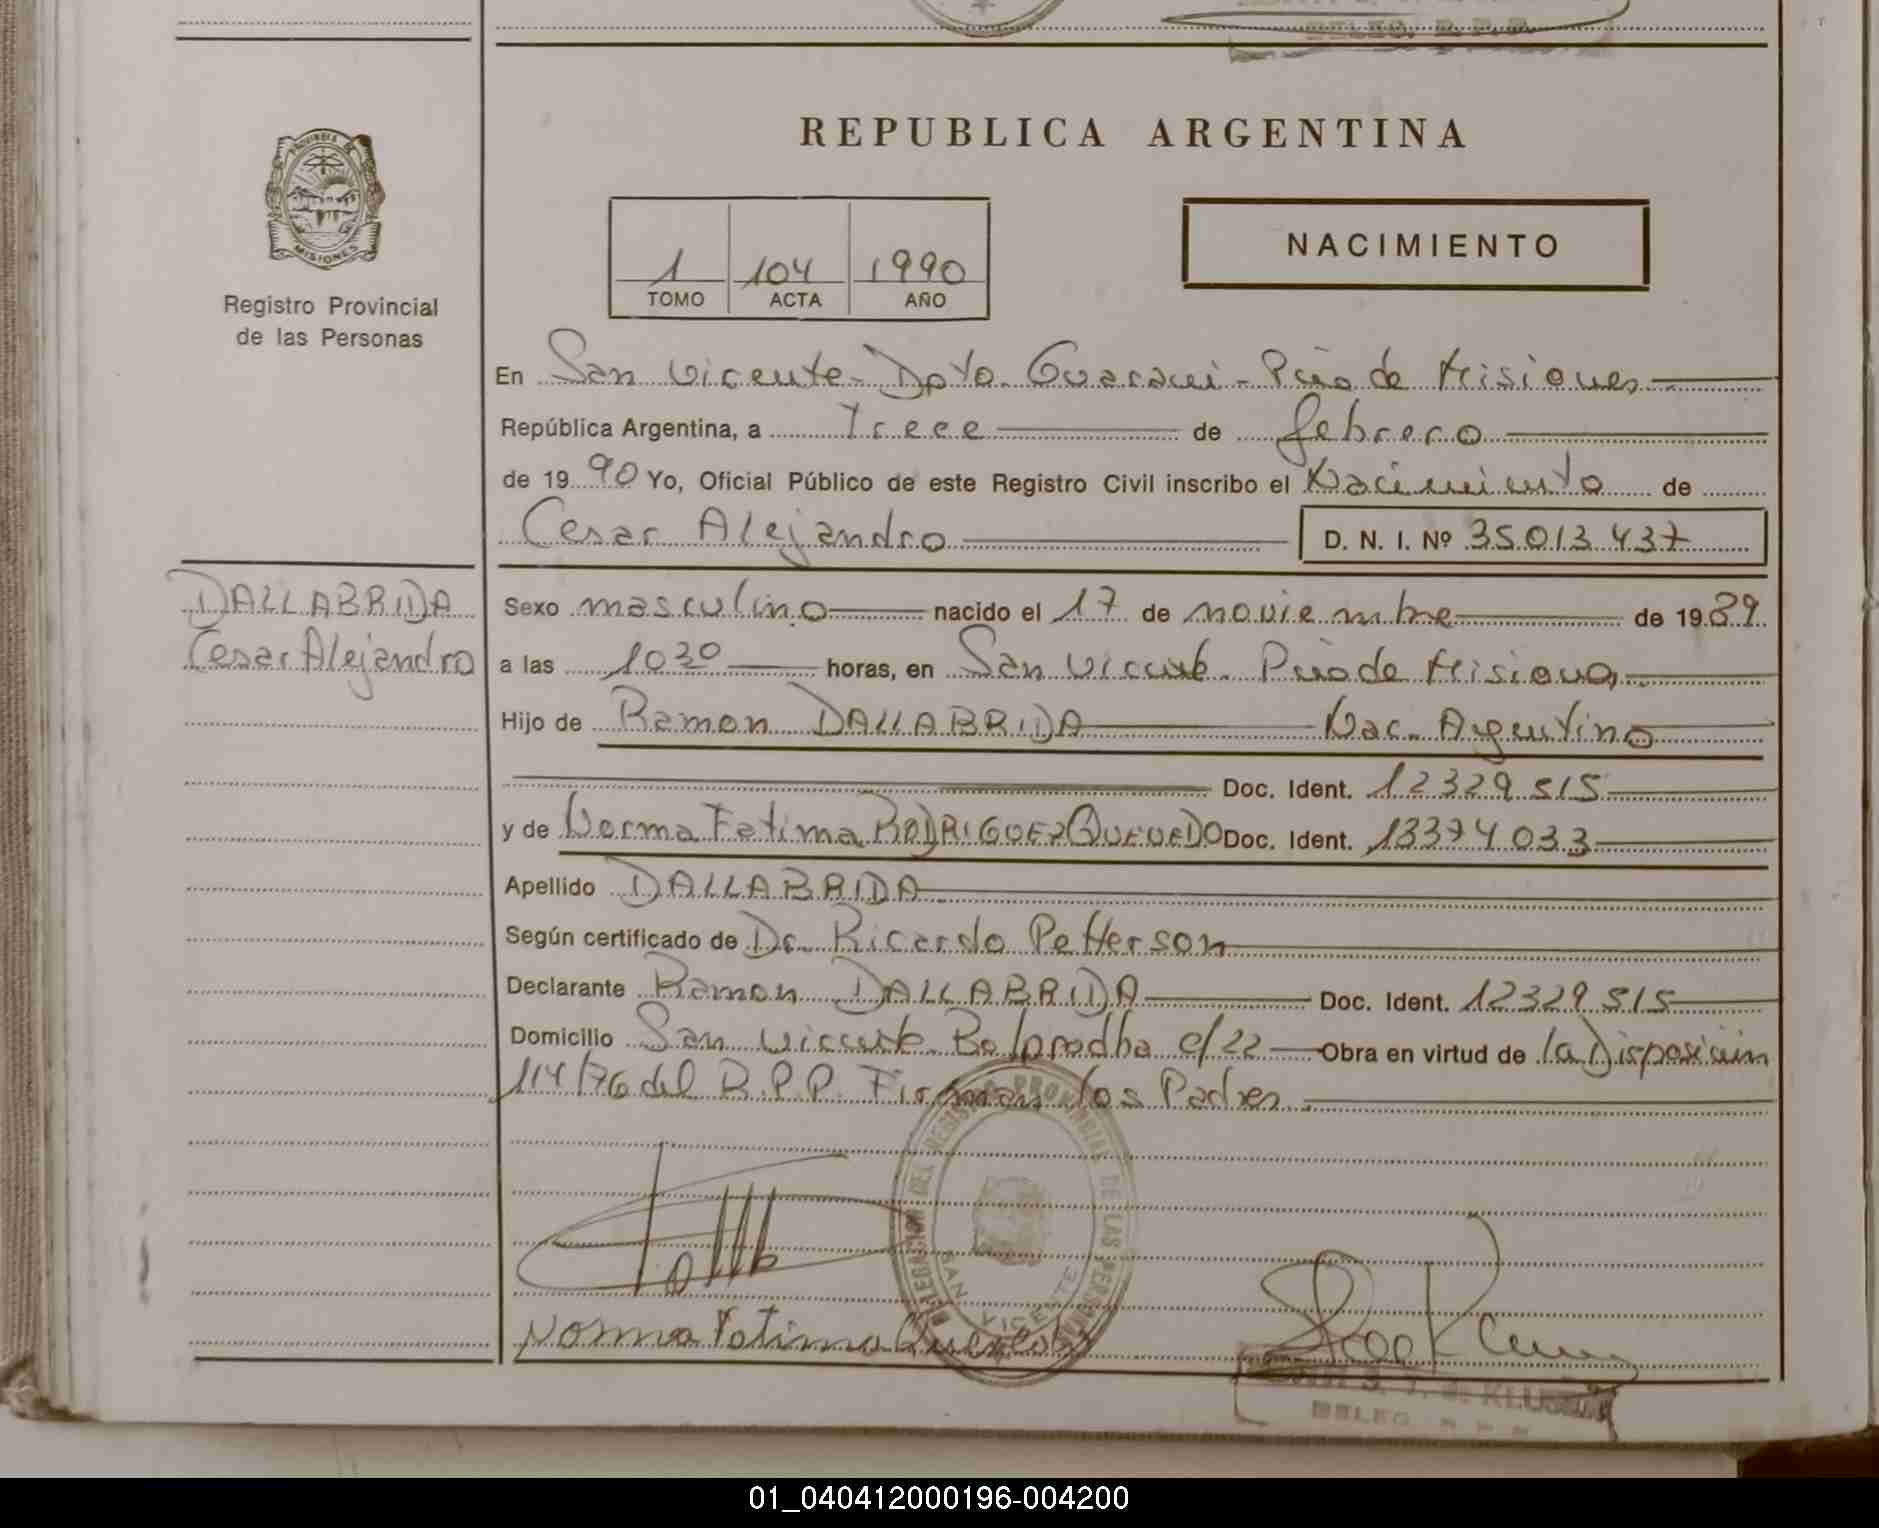 DELEG. R. P. P.
REPUBLICA ARGENTINA
PROVINCIA DE MISIONES
Registro Provincial
de las Personas
1 104 1990
TOMO ACTA AÑO
NACIMIENTO
En San Vicente - Dpto. Guarani - Pcia de Misiones
República Argentina, a Trece de febrero
de 1990 Yo, Oficial Público de este Registro Civil inscribo el Nacimiento de
Cesar Alejandro D. N. I. Nº 35013437
DALLABRIDA
Cesar Alejandro
Sexo masculino nacido el 17 de noviembre de 1989
a las 1030 horas, en San Vicente - Pcia de Misiones
Hijo de Ramon DALLABRIDA Nac. Argentino
Doc. Ident. 12329515
y de Norma Fatima RODRIGUEZ QUEVEDO Doc. Ident. 13374033
Apellido DALLABRIDA
Según certificado de Dr. Ricardo Petterson
Declarante Ramon DALLABRIDA Doc. Ident. 12329515
Domicilio San Vicente c/22 Obra en virtud de la Disposición
114/76 del R.P.P. Firman los Padres
DELEGACION DEL REGISTRO PROVINCIAL DE LAS PERSONAS
SAN VICENTE
Norma Fatima Quevedo
DELEG. R. P. P.
01_040412000196-004200